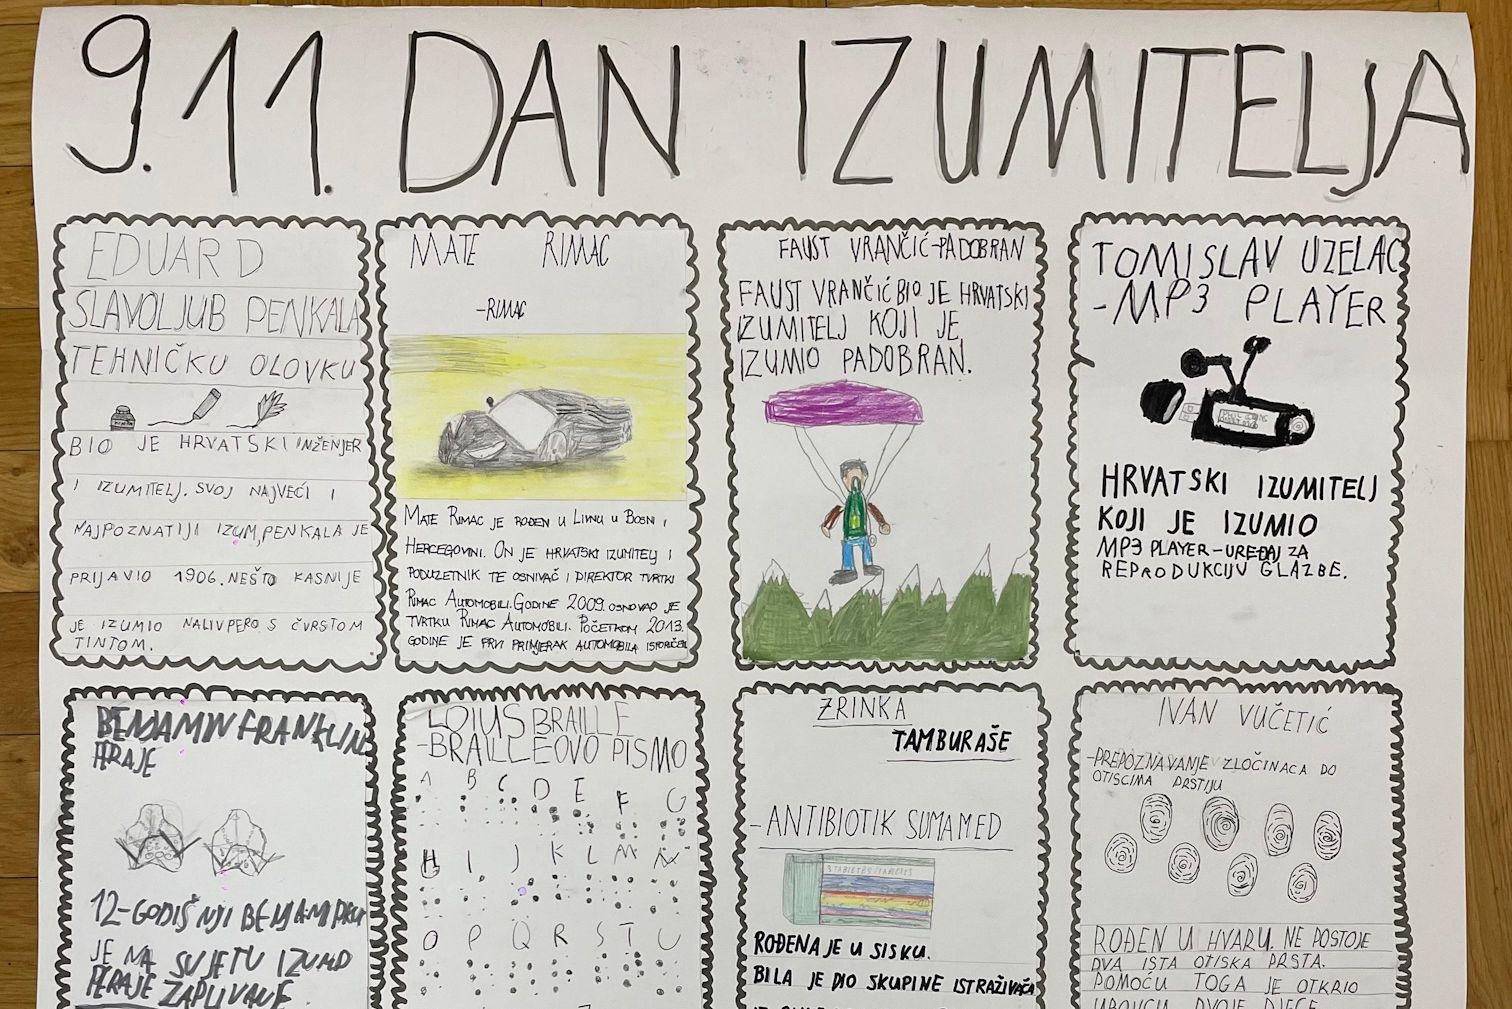 9.11. DAN IZUMITELJA
EDUARD
SLAVOLJUB PENKALA
TEHNIČKU OLOVKU
BIO JE HRVATSKI INŽENJER
I IZUMITELJ. SVOJ NAJVEĆI I
NAJPOZNATIJI IZUM, PENKALA JE
PRIJAVIO 1906. NEŠTO KASNIJE
JE IZUMIO NALIVPERO S ČVRSTOM
TINTOM.
MATE RIMAC
-RIMAC
MATE RIMAC JE ROĐEN U LIVNU U BOSNI I
HERCEGOVINI. ON JE HRVATSKI IZUMITELJ I
PODUZETNIK TE OSNIVAČ I DIREKTOR TVRTKI
RIMAC AUTOMOBILI. GODINE 2009. OSNOVAO JE
TVRTKU RIMAC AUTOMOBILI. POČETKOM 2013.
GODINE JE PRVI PRIMJERAK AUTOMOBILA ISPORUČEN
FAUST VRANČIĆ-PADOBRAN
FAUST VRANČIĆ BIO JE HRVATSKI
IZUMITELJ KOJI JE
IZUMIO PADOBRAN.
TOMISLAV UZELAC
-MP3 PLAYER
HRVATSKI IZUMITELJ
KOJI JE IZUMIO
MP3 PLAYER-UREĐAJ ZA
REPRODUKCIJU GLAZBE.
BENJAMIN FRANKLIN
PERAJE
12-GODIŠNJI BENJAMIN PRVI
JE NA SVIJETU IZUMIO
PERAJE ZAPLIVANJE
LOIUS BRAILLE
-BRAILLEOVO PISMO
A B C D E F G
H I J K L M N
O P Q R S T U
ZRINKA
TAMBURAŠE
-ANTIBIOTIK SUMAMED
ROĐENA JE U SISKU.
BILA JE DIO SKUPINE ISTRAŽIVAČA
IVAN VUČETIĆ
-PREPOZNAVANJE ZLOČINACA PO
OTISCIMA PRSTIJU
ROĐEN U HVARU. NE POSTOJE
DVA ISTA OTISKA PRSTA.
POMOĆU TOGA JE OTKRIO
UBOJICU DVOJE DJECE